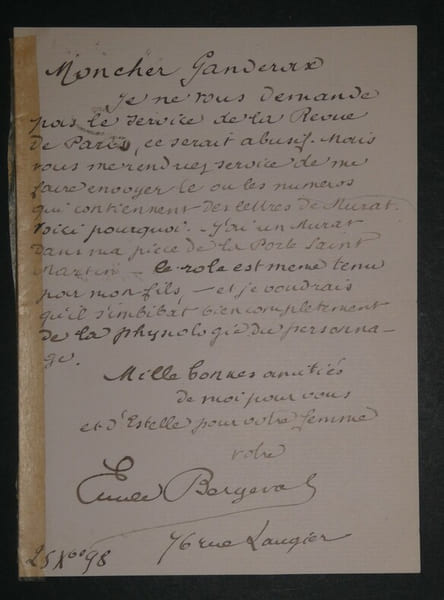 Mon cher Ganderax
Je ne vous demande
pas le service de la Revue
de Paris, ce serait abusif. Mais
vous me rendriez service de me
faire envoyer le ou les numeros
qui contiennent des lettres de Murat.
Voici pourquoi. J'ai un Murat
dans ma piece de la Porte Saint
Martin — le role est meme tenu
par mon fils, — et je voudrais
qu'il s'imbibat bien completement
de la physiologie du personna-
ge.
Mille bonnes amitiés
de moi pour vous
et d'Estelle pour votre femme
votre
Emile Bergerat
76 rue Laugier
25 Xbre 98